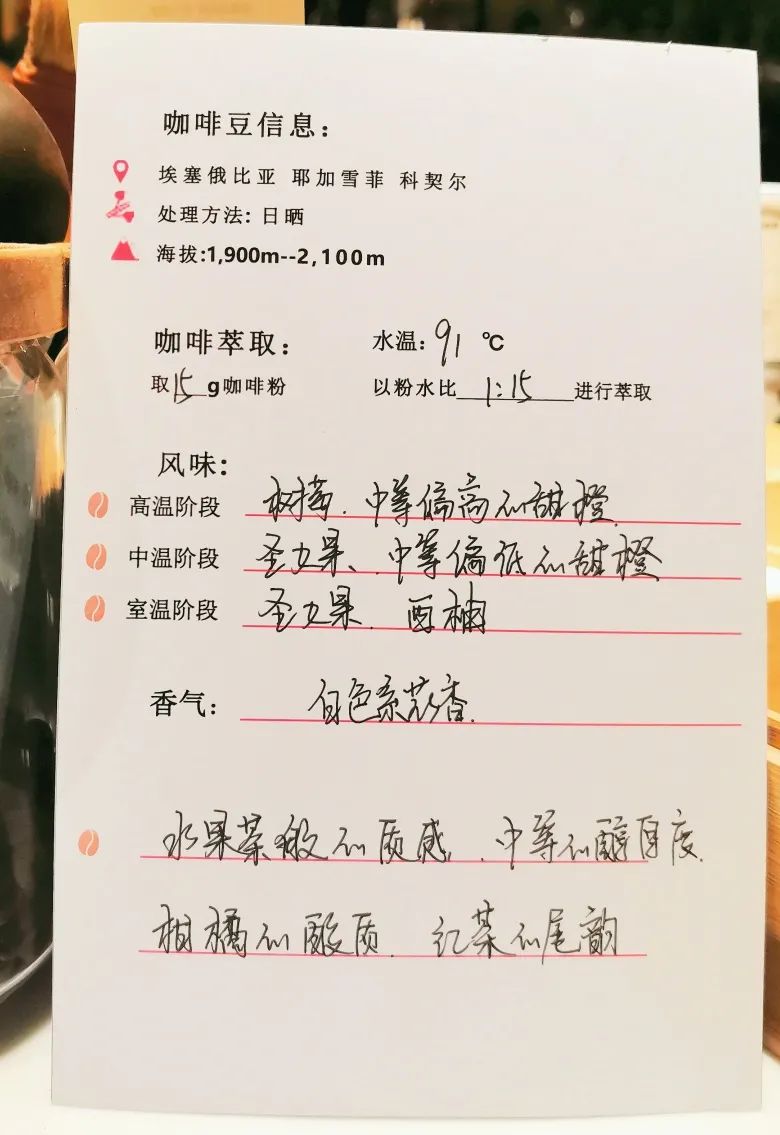 咖啡豆信息：
埃塞俄比亚 耶加雪菲 科契尔
处理方法: 日晒
海拔:1,900m--2,100m
咖啡萃取： 水温: 91 ℃
取15g咖啡粉 以粉水比 1:15 进行萃取
风味：
高温阶段 树莓、中等偏高的甜橙.
中温阶段 圣女果、中等偏低的甜橙
室温阶段 圣女果、西柚
香气： 白色系花香.
水果茶般的质感、中等的醇厚度.
柑橘的酸质、红茶的尾韵